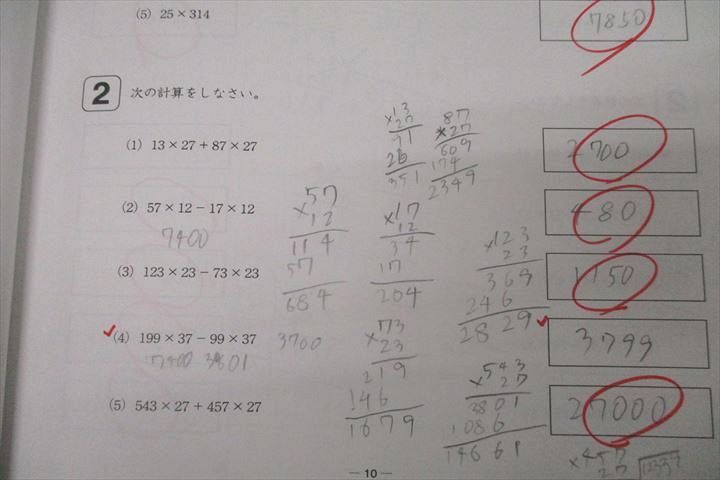 (5) 25 × 314
7850
2 次の計算をしなさい。
(1) 13 × 27 + 87 × 27
×13
27
91
26
351
87
×27
609
174
2349
2700
(2) 57 × 12 − 17 × 12
7400
57
×12
114
57
684
×17
12
34
17
204
480
(3) 123 × 23 − 73 × 23
×123
23
369
246
2829
1150
(4) 199 × 37 − 99 × 37
7400 3801
3700
×73
23
219
146
1679
3799
(5) 543 × 27 + 457 × 27
×543
27
3801
1086
14661
27000
×457
27
12339
— 10 —